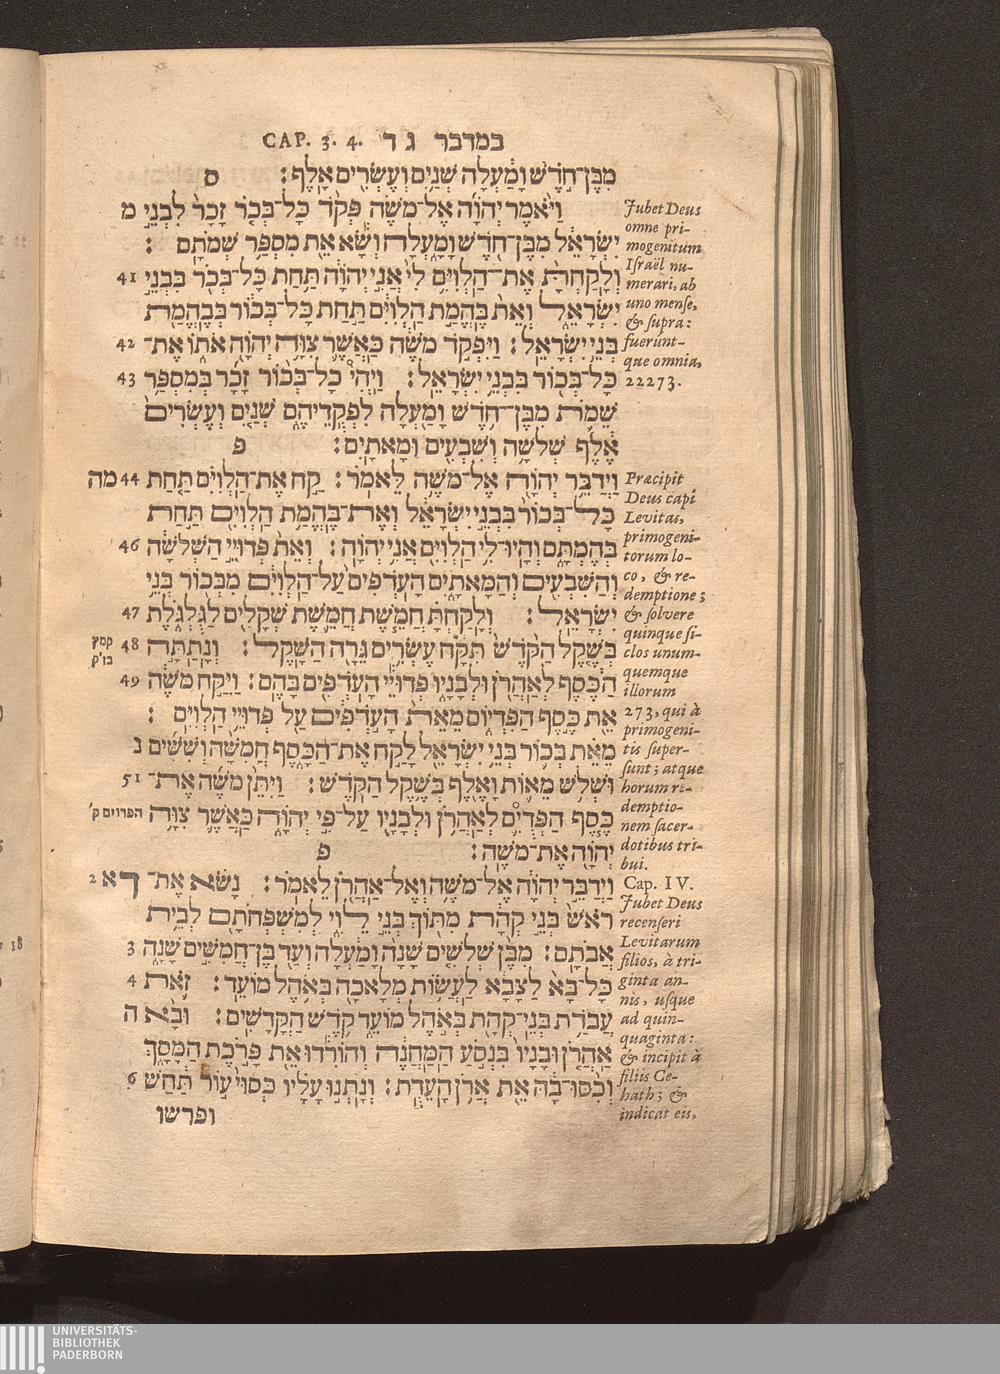 במדבר ג ד CAP. 3. 4.
מִבֶּן־חֹדֶשׁ וָמַעְלָה שְׁנַיִם וְעֶשְׂרִים אָלֶף׃ ס
וַיֹּאמֶר יְהוָֹה אֶל־מֹשֶׁה פְּקֹד כָּל־בְּכֹר זָכָר לִבְנֵי מ
יִשְׂרָאֵל מִבֶּן־חֹדֶשׁ וָמָעְלָה וְשָׂא אֵת מִסְפַּר שְׁמֹתָם׃
וְלָקַחְתָּ אֶת־הַלְוִיִּם לִי אֲנִי יְהוָֹה תַּחַת כָּל־בְּכֹר בִּבְנֵי 41
יִשְׂרָאֵל וְאֵת בֶּהֱמַת הַלְוִיִּם תַּחַת כָּל־בְּכוֹר בְּבֶהֱמַת
בְּנֵי יִשְׂרָאֵל׃ וַיִּפְקֹד מֹשֶׁה כַּאֲשֶׁר צִוָּה יְהוָֹה אֹתוֹ אֶת־ 42
כָּל־בְּכוֹר בִּבְנֵי יִשְׂרָאֵל׃ וַיְהִי כָל־בְּכוֹר זָכָר בְּמִסְפַּר 43
שֵׁמֹת מִבֶּן־חֹדֶשׁ וָמַעְלָה לִפְקֻדֵיהֶם שְׁנַיִם וְעֶשְׂרִים
אֶלֶף שְׁלֹשָׁה וְשִׁבְעִים וּמָאתָיִם׃ פ
וַיְדַבֵּר יְהוָֹה אֶל־מֹשֶׁה לֵּאמֹר׃ קַח אֶת־הַלְוִיִּם תַּחַת 44 מה
כָּל־בְּכוֹר בִּבְנֵי יִשְׂרָאֵל וְאֶת־בֶּהֱמַת הַלְוִיִּם תַּחַת
בְּהֶמְתָּם וְהָיוּ־לִי הַלְוִיִּם אֲנִי יְהוָֹה׃ וְאֵת פְּדוּיֵי הַשְּׁלֹשָׁה 46
וְהַשִּׁבְעִים וְהַמָּאתָיִם הָעֹדְפִים עַל־הַלְוִיִּם מִבְּכוֹר בְּנֵי
יִשְׂרָאֵל׃ וְלָקַחְתָּ חֲמֵשֶׁת חֲמֵשֶׁת שְׁקָלִים לַגֻּלְגֹּלֶת 47
בְּשֶׁקֶל הַקֹּדֶשׁ תִּקָּח עֶשְׂרִים גֵּרָה הַשָּׁקֶל׃ וְנָתַתָּה 48
קמץ
בז״ק
הַכֶּסֶף לְאַהֲרֹן וּלְבָנָיו פְּדוּיֵי הָעֹדְפִים בָּהֶם׃ וַיִּקַּח מֹשֶׁה 49
אֵת כֶּסֶף הַפִּדְיוֹם מֵאֵת הָעֹדְפִים עַל פְּדוּיֵי הַלְוִיִּם׃
מֵאֵת בְּכוֹר בְּנֵי יִשְׂרָאֵל לָקַח אֶת־הַכָּסֶף חֲמִשָּׁה וְשִׁשִּׁים נ
וּשְׁלֹשׁ מֵאוֹת וָאֶלֶף בְּשֶׁקֶל הַקֹּדֶשׁ׃ וַיִּתֵּן מֹשֶׁה אֶת־ 51
כֶּסֶף הַפְּדֻיִם לְאַהֲרֹן וּלְבָנָיו עַל־פִּי יְהוָֹה כַּאֲשֶׁר צִוָּה הפדוים ק׳
יְהוָֹה אֶת־מֹשֶׁה׃ פ
וַיְדַבֵּר יְהוָֹה אֶל־מֹשֶׁה וְאֶל־אַהֲרֹן לֵאמֹר׃ נָשֹׂא אֶת־ ד א 2
רֹאשׁ בְּנֵי קְהָת מִתּוֹךְ בְּנֵי לֵוִי לְמִשְׁפְּחֹתָם לְבֵית
אֲבֹתָם׃ מִבֶּן שְׁלֹשִׁים שָׁנָה וָמַעְלָה וְעַד בֶּן־חֲמִשִּׁים שָׁנָה 3
כָּל־בָּא לַצָּבָא לַעֲשׂוֹת מְלָאכָה בְּאֹהֶל מוֹעֵד׃ זֹאת 4
עֲבֹדַת בְּנֵי־קְהָת בְּאֹהֶל מוֹעֵד קֹדֶשׁ הַקֳּדָשִׁים׃ וּבָא ה
אַהֲרֹן וּבָנָיו בִּנְסֹעַ הַמַּחֲנֶה וְהוֹרִדוּ אֵת פָּרֹכֶת הַמָּסָךְ
וְכִסּוּ־בָהּ אֵת אֲרֹן הָעֵדֻת׃ וְנָתְנוּ עָלָיו כְּסוּי עוֹר תַּחַשׁ 6
ופרשו
Jubet Deus
omne pri-
mogenitum
Israël nu-
merari, ab
uno mense,
& supra:
fuerunt-
que omnia,
22273.
Præcipit
Deus capi
Levitas,
primogeni-
torum lo-
co, & re-
demptione;
& solvere
quinque si-
clos unum-
quemque
illorum
273, qui à
primogeni-
tis super-
sunt; atque
horum re-
demptio-
nem sacer-
dotibus tri-
bui.
Cap. IV.
Jubet Deus
recenseri
Levitarum
filios, à tri-
ginta an-
nis, usque
ad quin-
quaginta:
& incipit à
filiis Ce-
hath; &
indicat eis,
18
UNIVERSITÄTS-
BIBLIOTHEK
PADERBORN